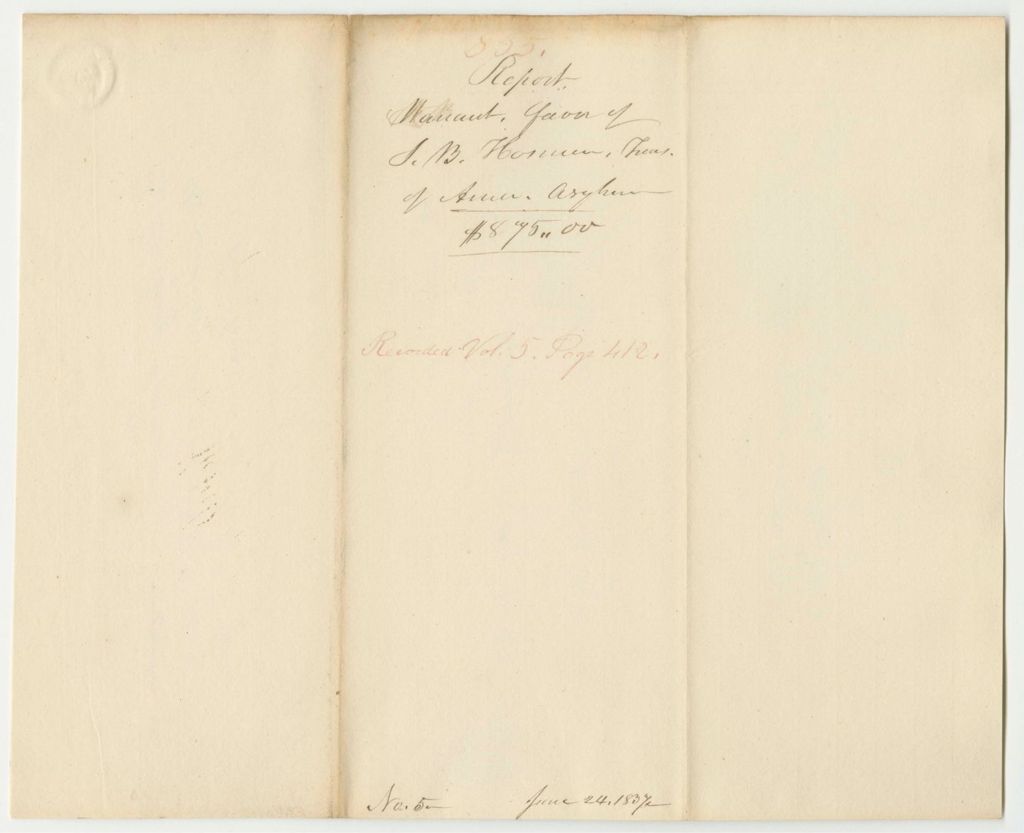 335.
Report.
Warrant, favor of
J. B. Hosmer, Treas.
of Amer. Asylum
$875,,00
Recorded Vol. 5. Page 412.
No. 5 June 24, 1837